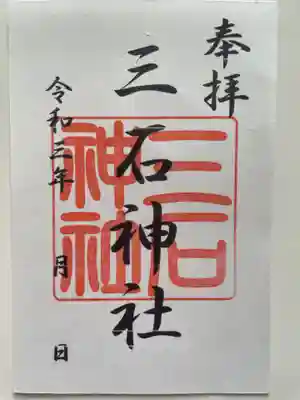 奉拝
三石神社
三石
神社
令和三年 月 日